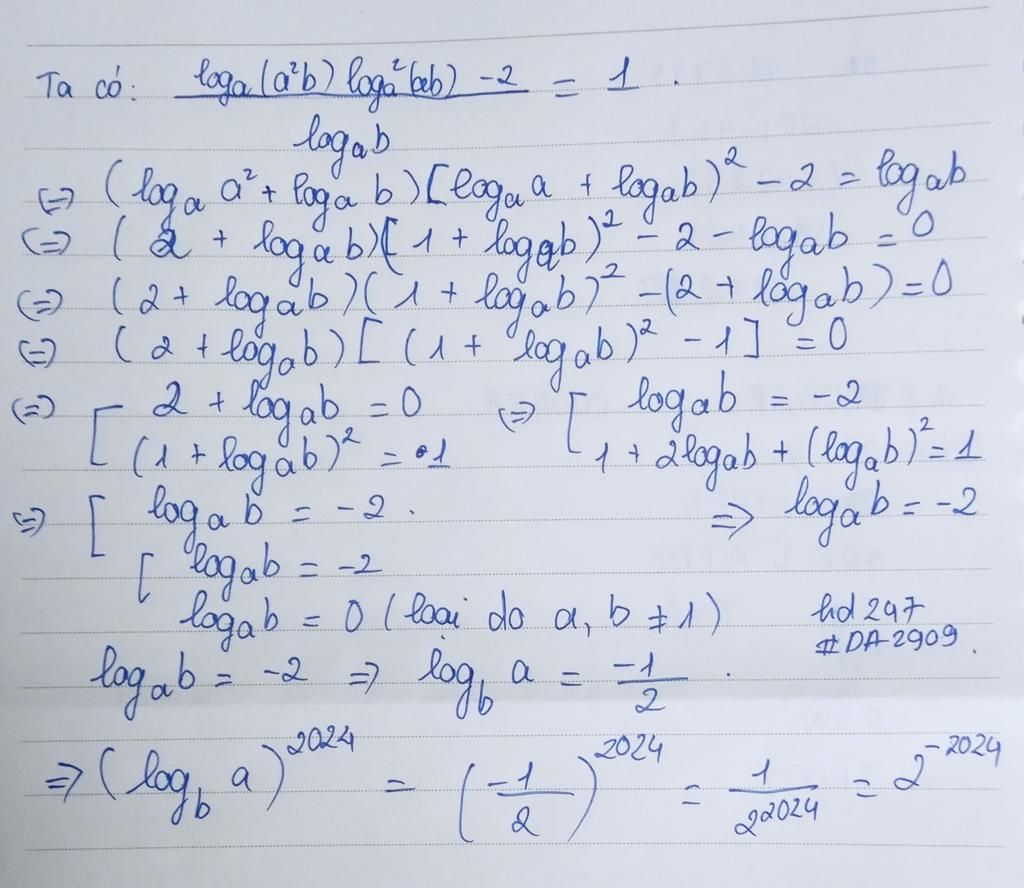 Ta có: log_a(a²b) log_a²(ab) - 2 / log_a b = 1.
(=) (log_a a² + log_a b)[log_a a + log_a b)² - 2 = log_a b
(=) (2 + log_a b)[1 + log_a b)² - 2 - log_a b = 0
(=) (2 + log_a b)(1 + log_a b)² - (2 + log_a b) = 0
(=) (2 + log_a b)[(1 + log_a b)² - 1] = 0
(=) [ 2 + log_a b = 0 (=) [ log_a b = -2
(1 + log_a b)² = 1 1 + 2log_a b + (log_a b)² = 1
=> [ log_a b = -2. => log_a b = -2
[ log_a b = -2
log_a b = 0 (loại do a, b ≠ 1) hd 247
#DA2909.
log_a b = -2 => log_b a = -1/2.
=> (log_b a)^2024 = (-1/2)^2024 = 1/2^2024 = 2^-2024